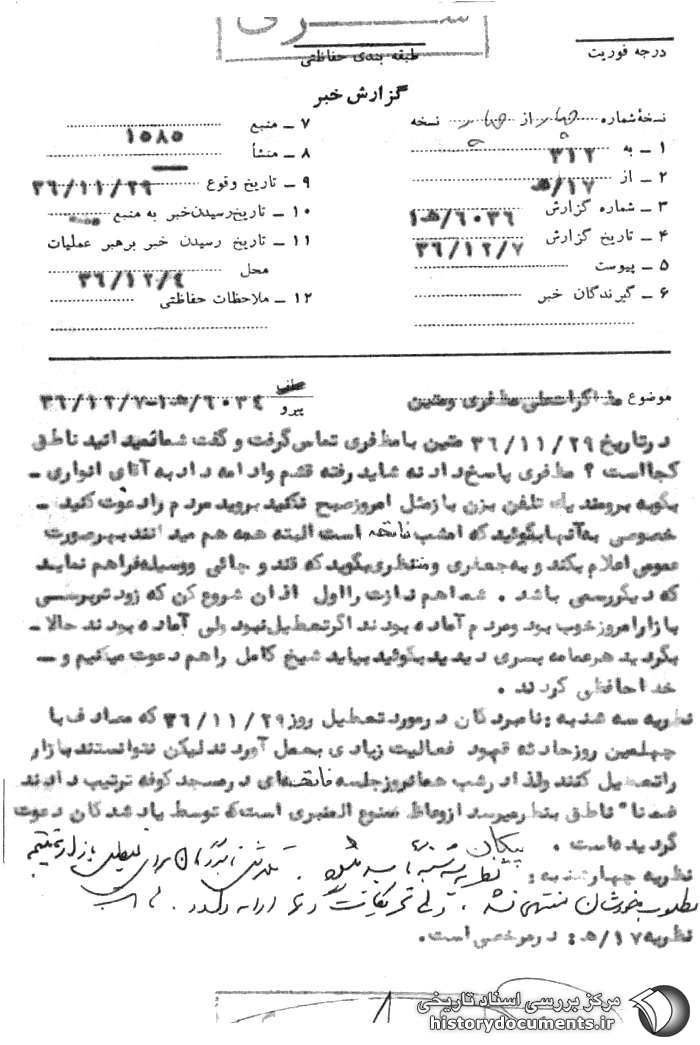 سری
درجه فوریت
طبقه بندی حفاظتی
گزارش خبر
نسخه شماره چهار از چهار نسخه
۱ ـ به ۳۱۲
۲ ـ از ۱۷/ه
۳ ـ شماره گزارش ۶۰۳۶/ه‍۱
۴ ـ تاریخ گزارش ۳۶/۱۲/۷
۵ ـ پیوست
۶ ـ گیرندگان خبر
۷ ـ منبع ۱۵۸۵
۸ ـ منشأ
۹ ـ تاریخ وقوع ۳۶/۱۱/۲۹
۱۰ ـ تاریخ رسیدن خبر به منبع
۱۱ ـ تاریخ رسیدن خبر برهبر عملیات
محل ۳۶/۱۲/۴
۱۲ ـ ملاحظات حفاظتی
موضوع مذاکرات علی مظفری و متین
پیرو ۶۰۳۴/ه‍۱-۳۶/۱۲/۷
درتاریخ ۳۶/۱۱/۲۹ متین با مظفری تماس گرفت و گفت شما نمیدانید ناطق
کجا است ؟ مظفری پاسخ داد نه شاید رفته قم و ادامه داد به آقای انواری ـ
بگو به برومند یک تلفن بزن بازمثل امروز صبح نکنید بروید مردم را دعوت کنید ـ
خصوصی به آنها بگوئید که امشب فاتحه است البته همه هم میدانند بهرصورت
عمومی اعلام بکند و به جعفری و منتظری بگوید که قند و چائی و وسیله فراهم نماید
که دیگر رسمی باشد . شما هم نمازت را اول اذان شروع کن که زودتر برسی
بازار امروز خوب بود و مردم آماده بودند اگر تعطیل نبود ولی آماده بودند حالا ـ
بگردید هر عمامه بسری دیدید بگوئید بیاید شیخ کامل را هم دعوت میکنیم و ـ
خداحافظی کردند .
نظریه سه شنبه : نامبردگان درمورد تعطیل روز ۳۶/۱۱/۲۹ که مصادف با
چهلمین روز حادثه قم بود فعالیت زیادی بعمل آوردند لیکن نتوانستند بازار
را تعطیل کنند و لذا در شب همانروز جلسه فاتحه‌ای در مسجد کوفه ترتیب دادند
ضمنا" ناطق بنظر میرسد از وعاظ ممنوع المنبری است که توسط یاد شدگان دعوت
گردیده است . پیکان
نظریه چهارشنبه : نظریه سه شنبه تأیید میشود . تلاش برای تعطیلی بازار
مطلوب خودشان منتهی نشد ، ولی تحریکات ادامه دارد .
نظریه ۱۷/ه‍ : درمرخصی است .
۱
مرکز بررسی اسناد تاریخی
historydocuments.ir